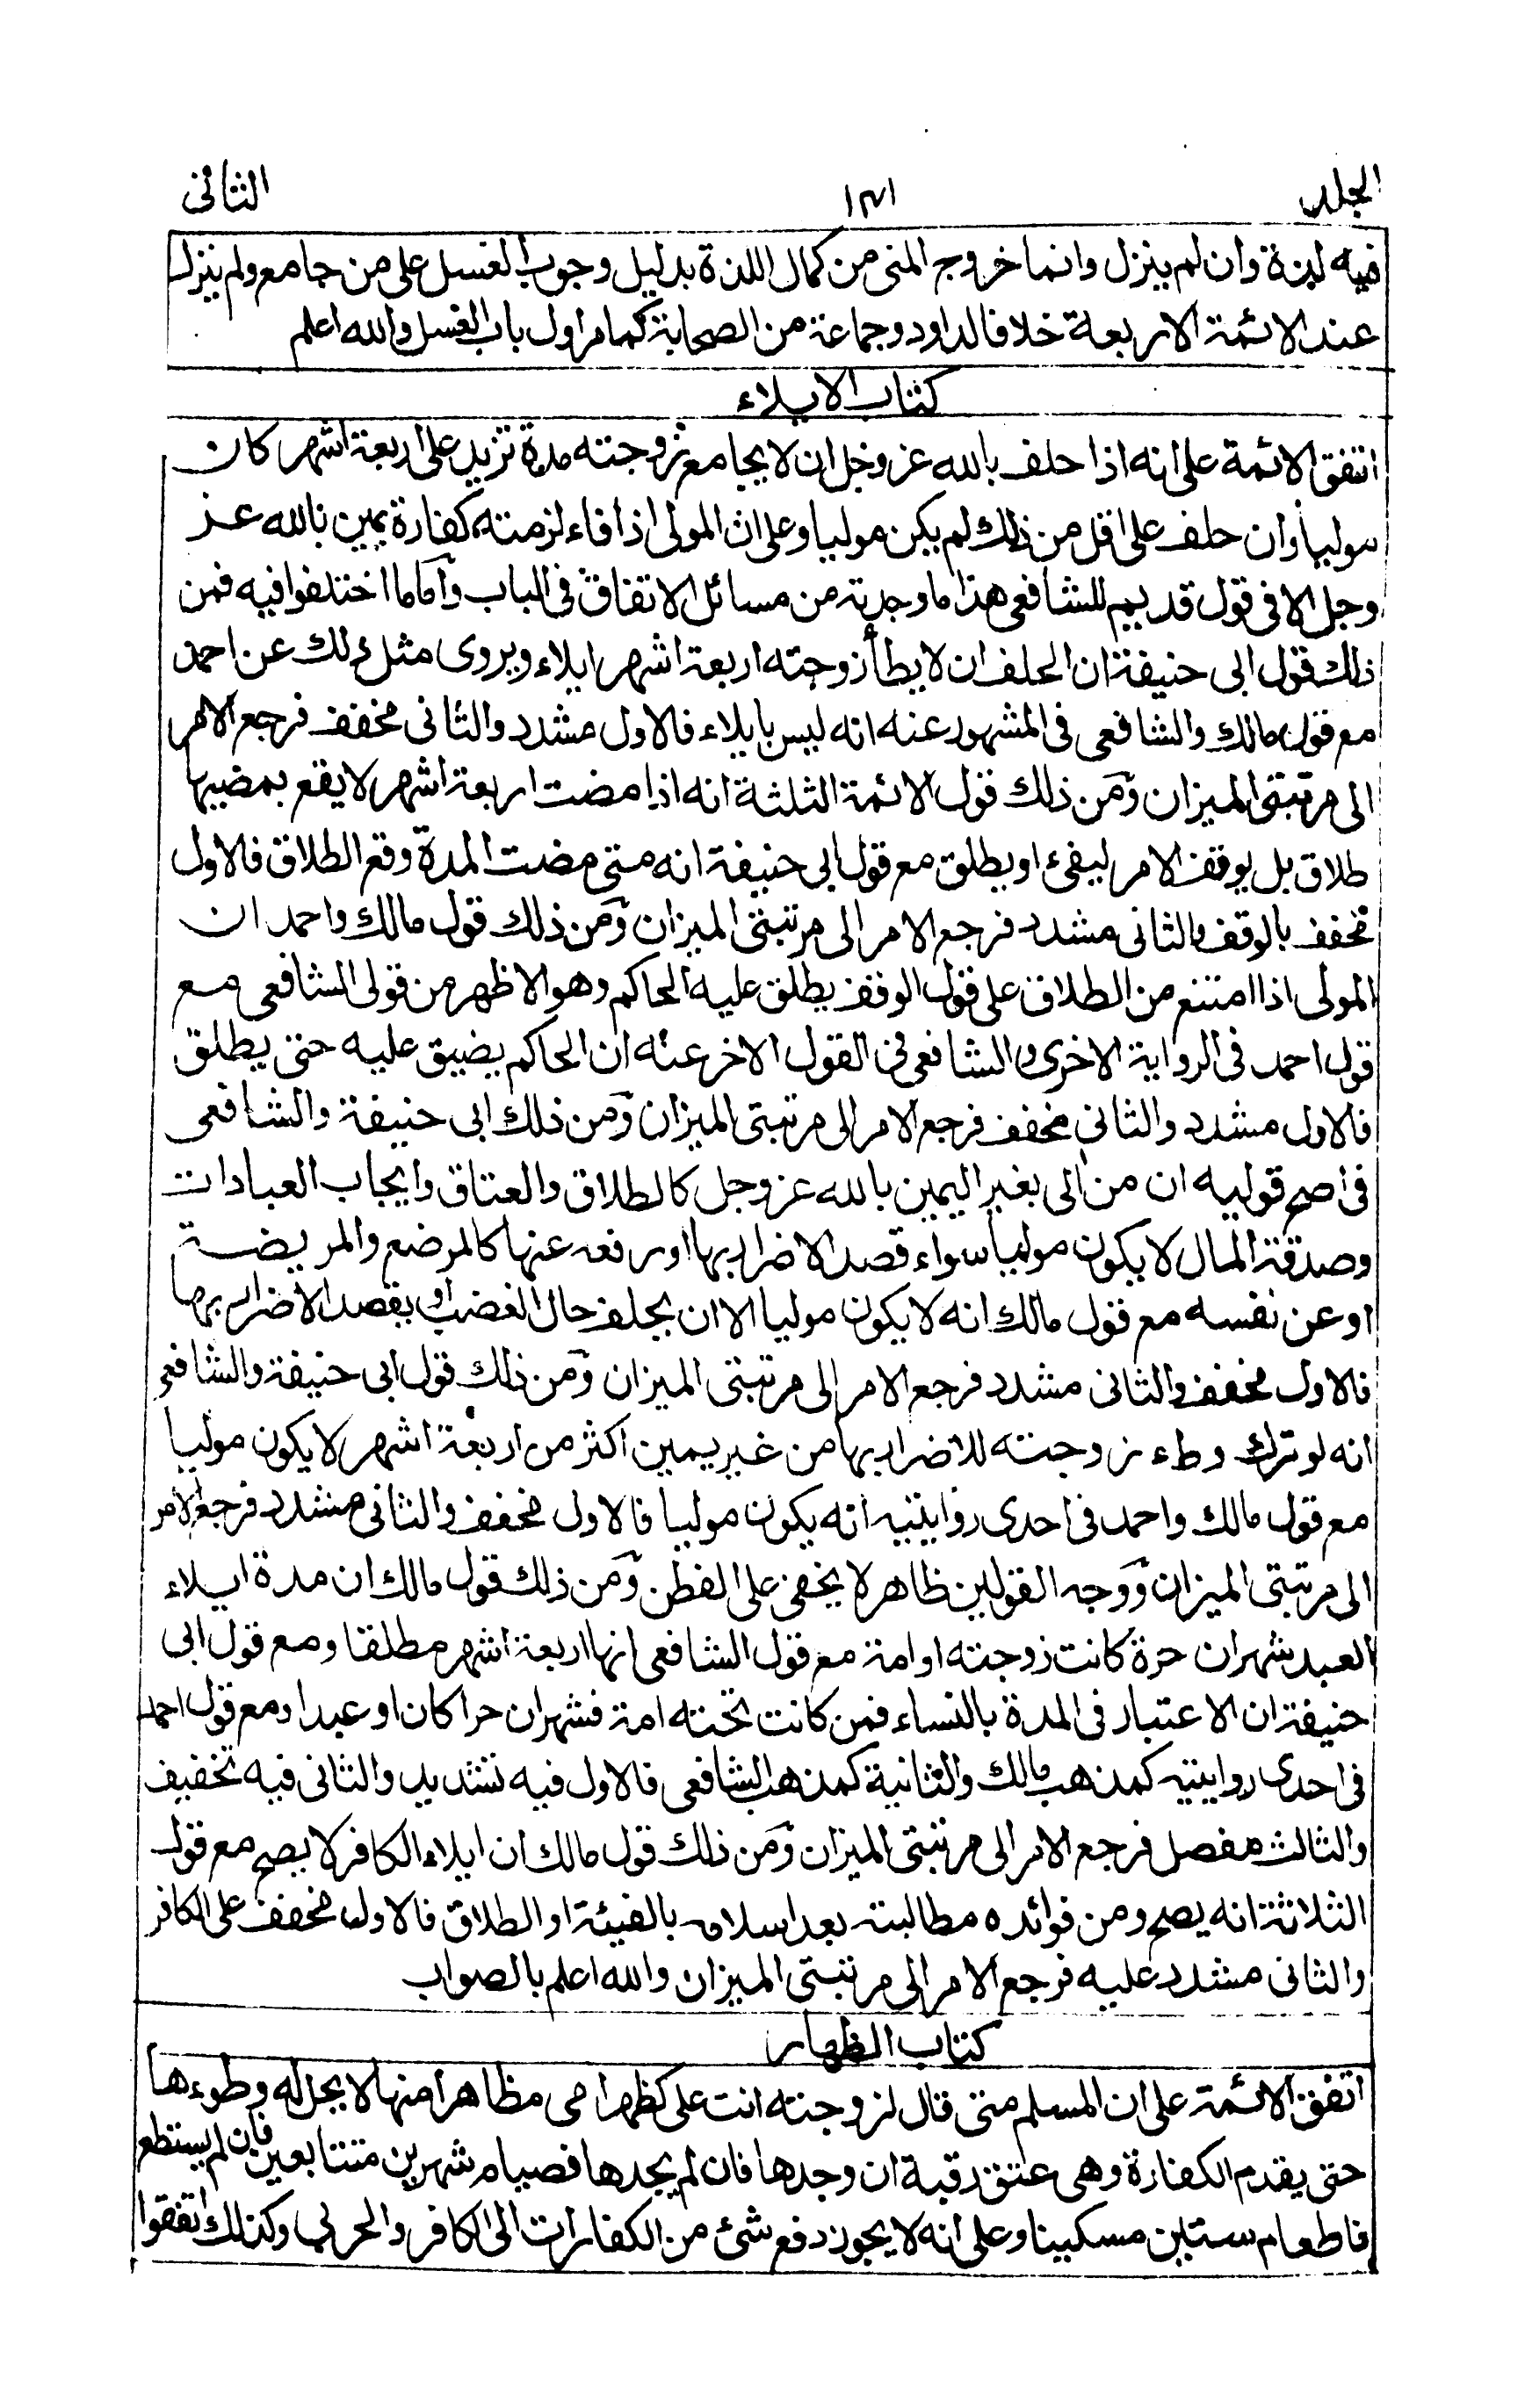 الجلد ١٣١ الثانى
فيه لذة وان لم ينزل وانما خروج المنى من كمال اللذة بدليل وجوب الغسل على من جامع ولم ينزل
عند الائمة الاربعة خلافا لداود وجماعة من الصحابة كما مر اول باب الغسل والله اعلم
كتاب الايلاء
اتفق الائمة على انه اذا حلف بالله عز وجل ان لا يجامع زوجته مدة تزيد على اربعة اشهر كان
موليا وان حلف على اقل من ذلك لم يكن موليا وعلى ان المولى اذا فاء لزمته كفارة يمين بالله عز
وجل الا فى قول قديم للشافعى هذا ما وجدته من مسائل الاتفاق فى الباب وآما ما اختلفوا فيه فمن
ذلك قول ابى حنيفة ان الحلف ان لا يطأ زوجته اربعة اشهر ايلاء ويروى مثل ذلك عن احمد
مع قول مالك والشافعى فى المشهور عنه انه ليس بايلاء فالاول مشدد والثانى مخفف فرجع الامر
الى مرتبتى الميزان وَمن ذلك قول الائمة الثلثة انه اذا مضت اربعة اشهر لا يقع بمضيها
طلاق بل يوقف الامر ليفئ او يطلق مع قول ابى حنيفة انه متى مضت المدة وقع الطلاق فالاول
مخفف بالوقف والثانى مشدد فرجع الامر الى مرتبتى الميزان وَمن ذلك قول مالك واحمد ان
المولى اذا امتنع من الطلاق على قول الوقف يطلق عليه الحاكم وهو الاظهر من قولى الشافعى مع
قول احمد فى الرواية الاخرى والشافعى فى القول الاخر عنه ان الحاكم يضيق عليه حتى يطلق
فالاول مشدد والثانى مخفف فرجع الامر الى مرتبتى الميزان وَمن ذلك ابى حنيفة والشافعى
فى اصح قوليه ان من الى بغير اليمين بالله عز وجل كالطلاق والعتاق وايجاب العبادات
وصدقة المال لا يكون موليا سواء قصد الاضرار بها او رفعه عنها كالمرضع والمريضة
او عن نفسه مع قول مالك انه لا يكون موليا الا ان يحلف حال الغضب او يقصد الاضرار بها
فالاول مخفف والثانى مشدد فرجع الامر الى مرتبتى الميزان وَمن ذلك قول ابى حنيفة والشافعى
انه لو ترك وطء زوجته للاضرار بها من غير يمين اكثر من اربعة اشهر لا يكون موليا
مع قول مالك واحمد فى احدى روايتيه انه يكون موليا فالاول مخفف والثانى مشدد فرجع الامر
الى مرتبتى الميزان وَوجه القولين ظاهر لا يخفى على الفطن وَمن ذلك قول مالك ان مدة ايلاء
العبد شهران حرة كانت زوجته او امة مع قول الشافعى انها اربعة اشهر مطلقا ومع قول ابى
حنيفة ان الاعتبار فى المدة بالنساء فمن كانت تحته امة فشهران حرا كان او عبدا ومع قول احمد
فى احدى روايتيه كمذهب مالك والثانية كمذهب الشافعى فالاول فيه تشديد والثانى فيه تخفيف
والثالث مفصل فرجع الامر الى مرتبتى الميزان وَمن ذلك قول مالك ان ايلاء الكافر لا يصح مع قول
الثلاثة انه يصح ومن فوائده مطالبته بعد اسلامه بالفيئة او الطلاق فالاول مخفف على الكافر
والثانى مشدد عليه فرجع الامر الى مرتبتى الميزان والله اعلم بالصواب
كتاب الظهار
اتفق الائمة على ان المسلم متى قال لزوجته انت على كظهر امى مظاهرا منها لا يحل له وطوءها
حتى يقدم الكفارة وهى عتق رقبة ان وجدها فان لم يجدها فصيام شهرين متتابعين فان لم يستطع
فاطعام ستين مسكينا وعلى انه لا يجوز دفع شئ من الكفارات الى الكافر والحربى وكذلك اتفقوا